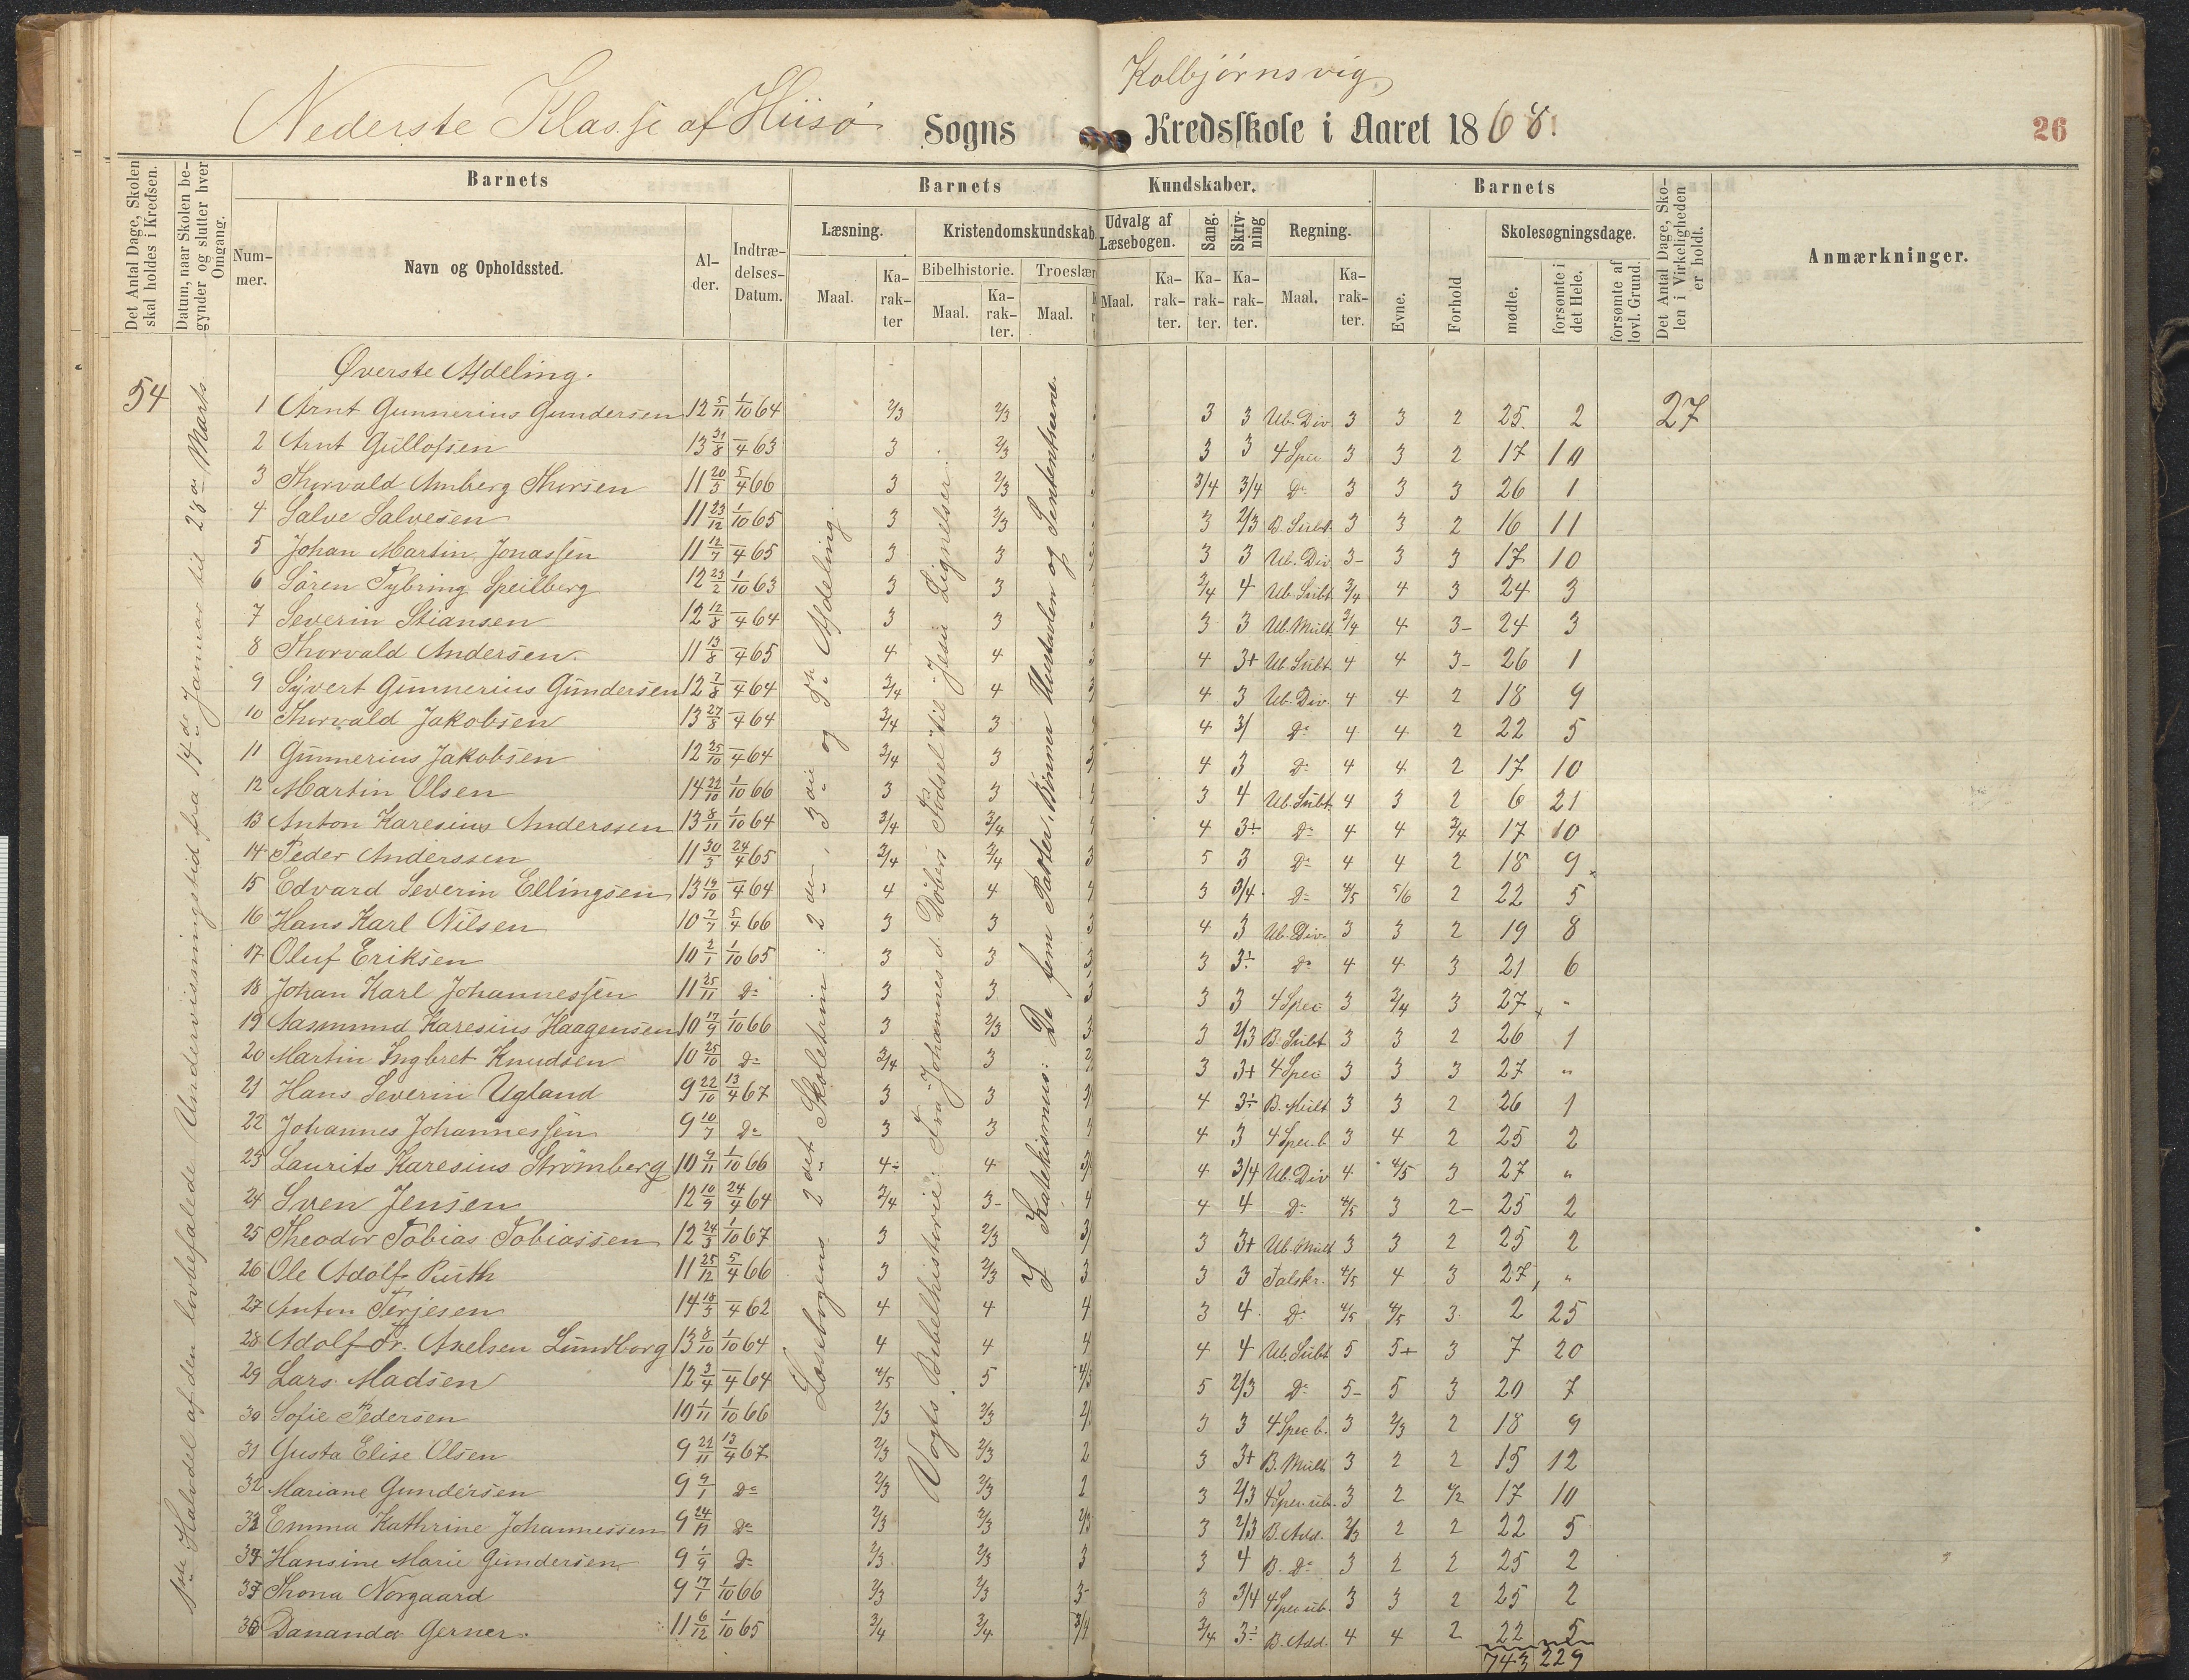 Kolbjørnsvig
Nederste Klasse af Hiisø Sogns Kredsskole i Aaret 1868.
26
Det Antal Dage, Skolen skal holdes i Kredsen.
Datum, naar Skolen begynder og slutter hver Omgang.
Barnets
Nummer.
Navn og Opholdssted.
Alder.
Indtrædelses-Datum.
Barnets Kundskaber.
Læsning.
Maal.
Karakter
Kristendomskundskab
Bibelhistorie.
Maal.
Karakter.
Troeslær
Maal.
Udvalg af Læsebogen.
Maal.
Karakter.
Sang.
Karakter.
Skrivning
Karakter.
Regning.
Maal.
Karakter.
Barnets
Evne.
Forhold
Skolesøgningsdage.
mødte.
forsømte i det Hele.
forsømte af lovl. Grund.
Det Antal Dage, Skolen i Virkeligheden er holdt.
Anmærkninger.
Øverste Afdeling.
54
1ste Halvdel af den lovbefalede Undervisningstid fra 14de Januar til 28de Marts
Læsebogens 2det Skoletrin: 2den, 3die og 5te Afdeling.
Vogts Bibelhistorie: Fra Johannes d. Døbers Fødsel til Jesu Lignelser.
Katekismus: De fem Parter, Bønnen Hustavlen og Sententserne.
1 Arnt Gunnerius Gundersen 12 5/11 1/10 64 2/3 2/3 3 3 Ub. Div 3 3 2 25. 2 27
2 Arnt Gullofsen 13 31/8 – 4 63 3 2/3 3 3 4 Spec 3 3 2 17 10
3 Thorvald Amberg Thorsen 11 20/3 5/4 66 3 2/3 3/4 3/4 Do 3 3 3 26 1
4 Salve Salvesen 11 23/12 1/10 65 3 2/3 3 2/3 B. Subt. 3 3 2 16 11
5 Johan Martin Jonassen 11 12/7 – 4 65 3 3 3 3 Ub. Div. 3- 3 3 17 10
6 Søren Tybring Speilberg 12 23/2 1/10 63 3 3 3/4 4 Ub. Subt 3/4 4 3 24 3
7 Severin Stiansen 12 12/8 – 4 64 3 3 3 3 Ub. Mult. 3/4 4 3- 24 3
8 Thorvald Andersen. 11 13/8 – 4 65 4 4 4 3+ Ub. Subt 4 4 3- 26 1
9 Syvert Gunnerius Gundersen 12 7/8 – 4 64 3/4 4 4 3 Ub. Div. 4 4 2 18 9
10 Thorvald Jakobsen 13 27/8 – 4 64 3/4 3 4 3/ Do 4 4 2 22 5
11 Gunnerius Jakobsen 12 25/10 – 4 64 3/4 3 4 3 Do 4 4 2 17 10
12 Martin Olsen 14 22/10 1/10 66 3 3 3 4 Ub. Subt. 4 3 2 6 21
13 Anton Karesius Anderssen 13 8/11 1/10 64 3/4 3/4 4 3÷ Do 4 4 3/4 17 10
14 Peder Anderssen 11 30/3 24/4 65 3/4 3/4 5 3 Do 4 4 2 18 9
15 Edvard Severin Ellingsen 13 19/10 – 4 64 4 4 3 3/4 Do 4/5 5/6 2 22 5
16 Hans Karl Nilsen 10 7/7 5/4 66 3 3 4 3 Ub. Div. 3 3 2 19 8
17 Oluf Eriksen 10 2/1 1/10 65 3 3 3 3÷ Do 4 4 3 21 6
18 Johan Karl Johannessen 11 25/11 Do 3 3 3 3 4 Spec 3 3/4 3 27 "
19 Aasmund Karesius Haagensen 10 17/9 1/10 66 3 2/3 3 2/3 B. Subt 3 3 2 26 1
20 Martin Ingbret Knudsen 10 25/10 Do 3/4 3 3 3+ 4 Spec 3 3 3 27 "
21 Hans Severin Ugland 9 22/10 13/4 67 3 3 4 3÷ B. Mult 3 3 2 26 1
22 Johannes Johannessen 9 10/7 Do 3 3 4 3 4 Spec. b. 3 4 2 25 2
23 Laurits Karesius Strømberg 10 4/11 1/10 66 4÷ 4 4 3/4 Ub. Div 4 4/5 3 27 "
24 Sven Jensen 12 10/9 24/4 64 3/4 3- 4 4 Do 4/5 3 2- 25 2
25 Theodor Tobias Tobiassen 12 24/3 1/10 67 3 2/3 3 3+ Ub. Mult 3 3 2 25 2
26 Ole Adolf Ruth 11 25/12 5/4 66 3 2/3 3 3 Talskr. 4/5 4 3 27 "
27 Anton Terjesen 14 18/3 – 4 62 4 4 3 4 Do 4/5 4/5 3 2 25
28 Adolf Fr. Axelsen Lundborg 13 8/10 1/10 64 4 4 4 4 Ub. Subt 5 5+ 3 7 20
29 Lars Madsen 12 3/4 – 4 64 4/5 5 5 2/3 Do 5- 5 3 20 7
30 Sofie Pedersen 10 1/11 1/10 66 2/3 2/3 3 3 4 Spec b. 3 2/3 2 18 9
31 Gusta Elise Olsen 9 21/11 13/4 67 2/3 2/3 3 3+ B. Mult 3 2 2 15 12
32 Mariane Gundersen 9 9/1 Do 2/3 2/3 3 2/3 4 Spec. ub. 3 2 1/2 17 10
33 Emma Kathrine Johannessen 9 24/11 Do 2/3 2/3 3 2/3 B. Add. 2/3 2 2 22 5
34 Hansine Marie Gundersen 9 1/9 Do 2/3 2/3 3 4 B. Do 3 2 2 25 2
35 Thona Norgaard 9 17/1 1/10 66 2/3 2/3 3 3/4 4 Spec ub. 3 3 2 25 2
36 Dananda Gerner. 11 6/12 1/10 65 3/4 3/4 3/4 3÷ B. Add. 4 4 2 22 5
743 229